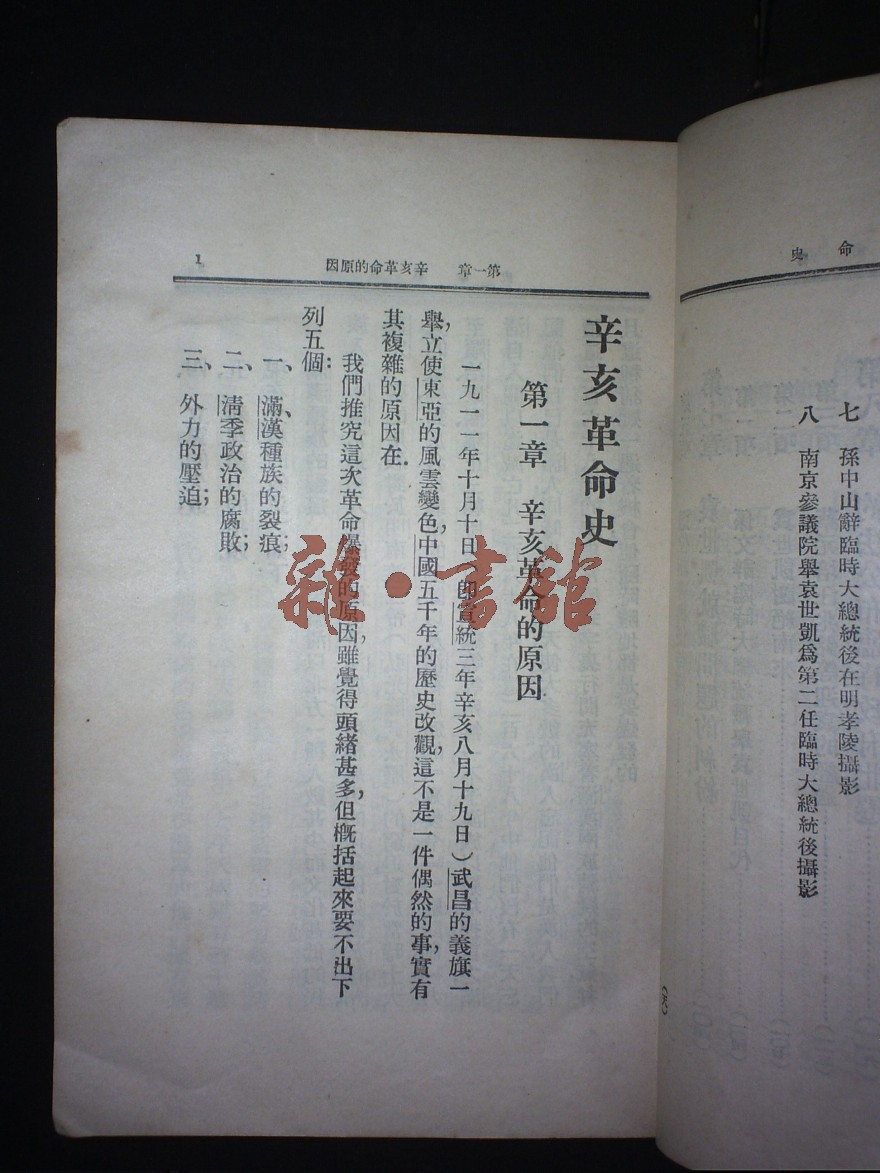 命史
七 孫中山辭臨時大總統後在明孝陵攝影
八 南京參議院舉袁世凱爲第二任臨時大總統後攝影
第一章 辛亥革命的原因
1
辛亥革命史
第一章 辛亥革命的原因
一九一一年十月十日(卽宣統三年辛亥八月十九日)武昌的義旗一
舉,立使東亞的風雲變色,中國五千年的歷史改觀,這不是一件偶然的事,實有
其複雜的原因在.
我們推究這次革命爆發的原因,雖覺得頭緒甚多,但概括起來要不出下
列五個:
一、滿、漢種族的裂痕;
二、清季政治的腐敗;
三、外力的壓迫;
雜·書舘